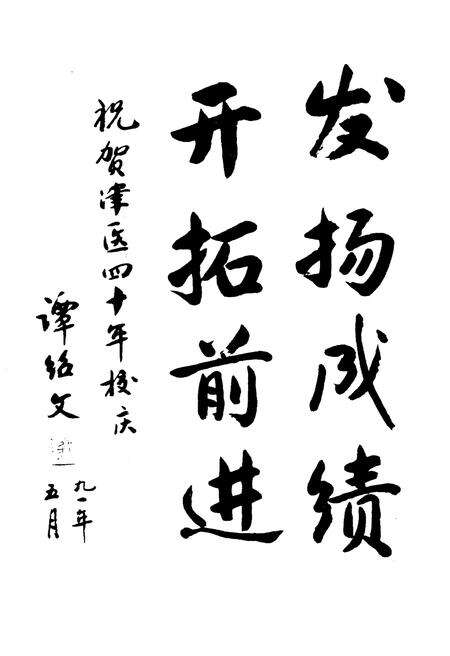 发扬成绩
开拓前进
祝贺津医四十年校庆
谭绍文
九一年
五月